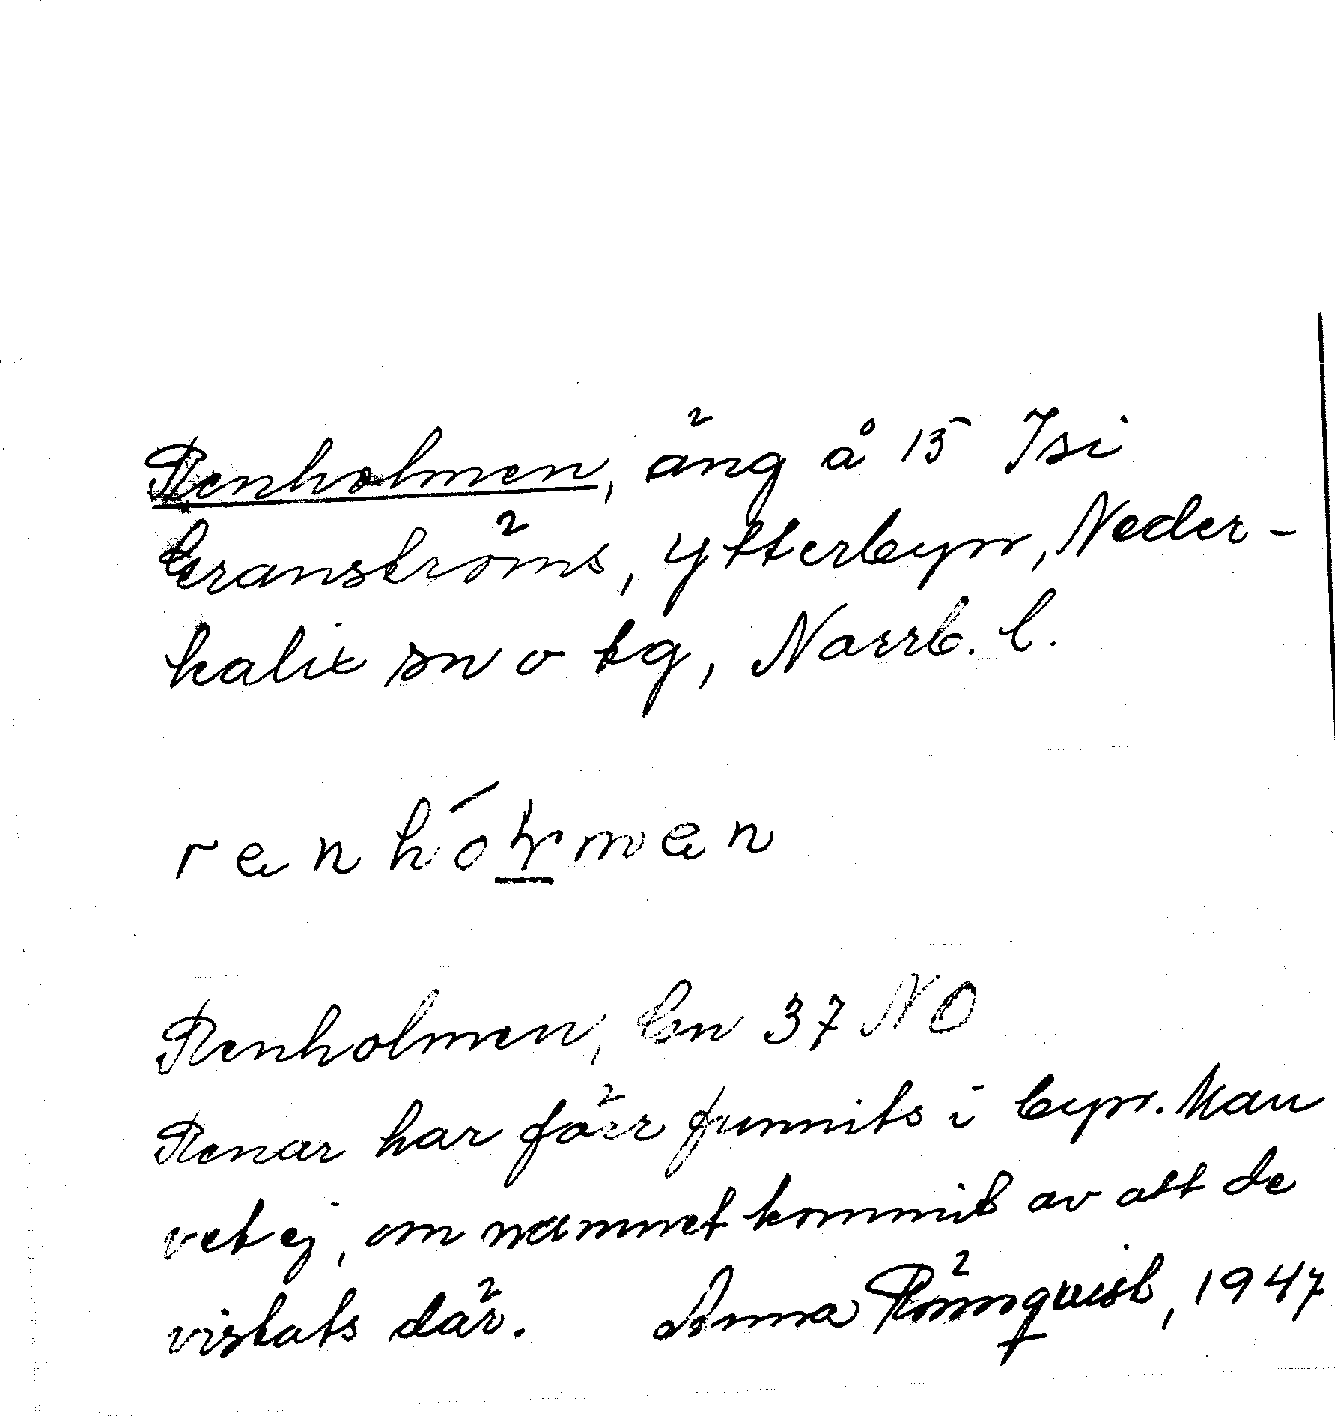 Renholmen, äng å 15 Isi
Granströms, Ytterbyn, Neder-
kalix sn o tg, Norrb. l.
renhó̱men
Renholmen, En 37 NO
Renar har förr funnits i byn. Man
vet ej, om namnet kommit av att de
vistats där. Anna Rönnqvist, 1947